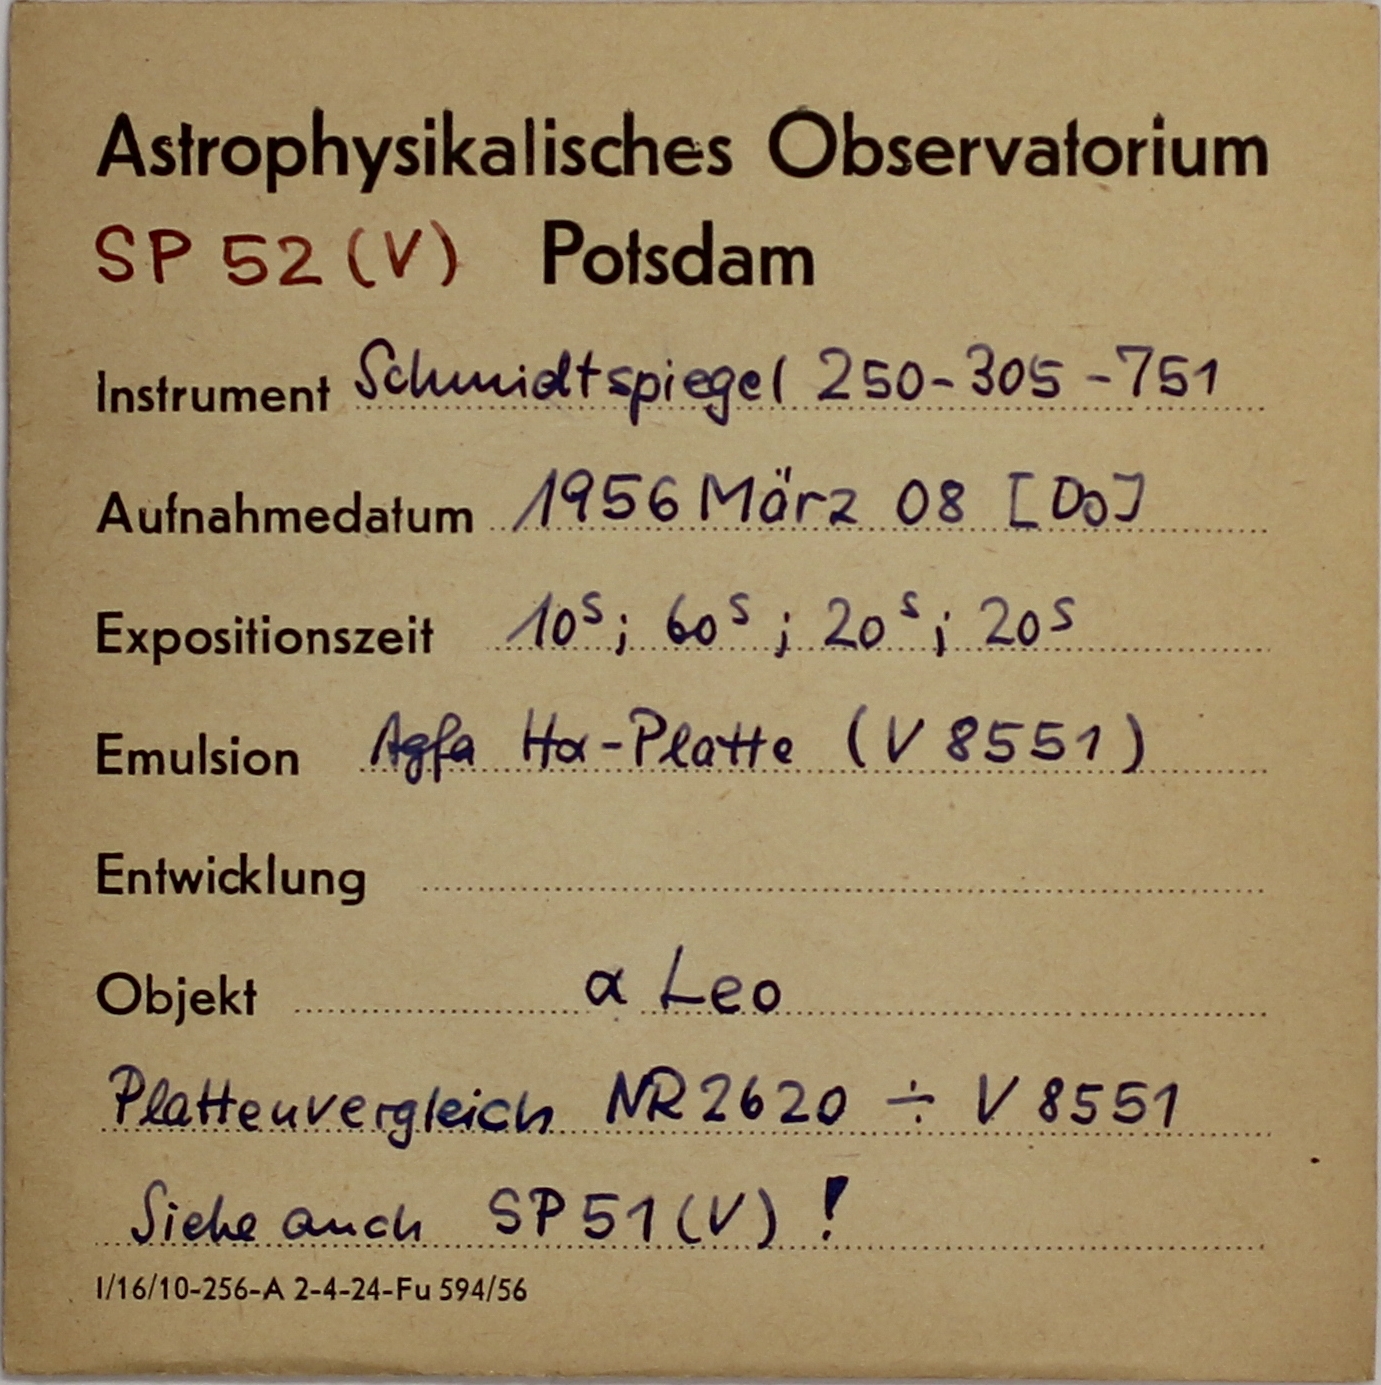 Astrophysikalisches Observatorium
SP 52 (V) Potsdam
Instrument Schmidtspiegel 250-305-751
Aufnahmedatum 1956 März 08 [Do]
Expositionszeit 10ˢ; 60ˢ; 20ˢ; 20ˢ
Emulsion Agfa Hα-Platte (V 8551)
Entwicklung
Objekt α Leo
Plattenvergleich NR 2620 ÷ V 8551
Siehe auch SP 51 (V) !
I/16/10-256-A 2-4-24-Fu 594/56